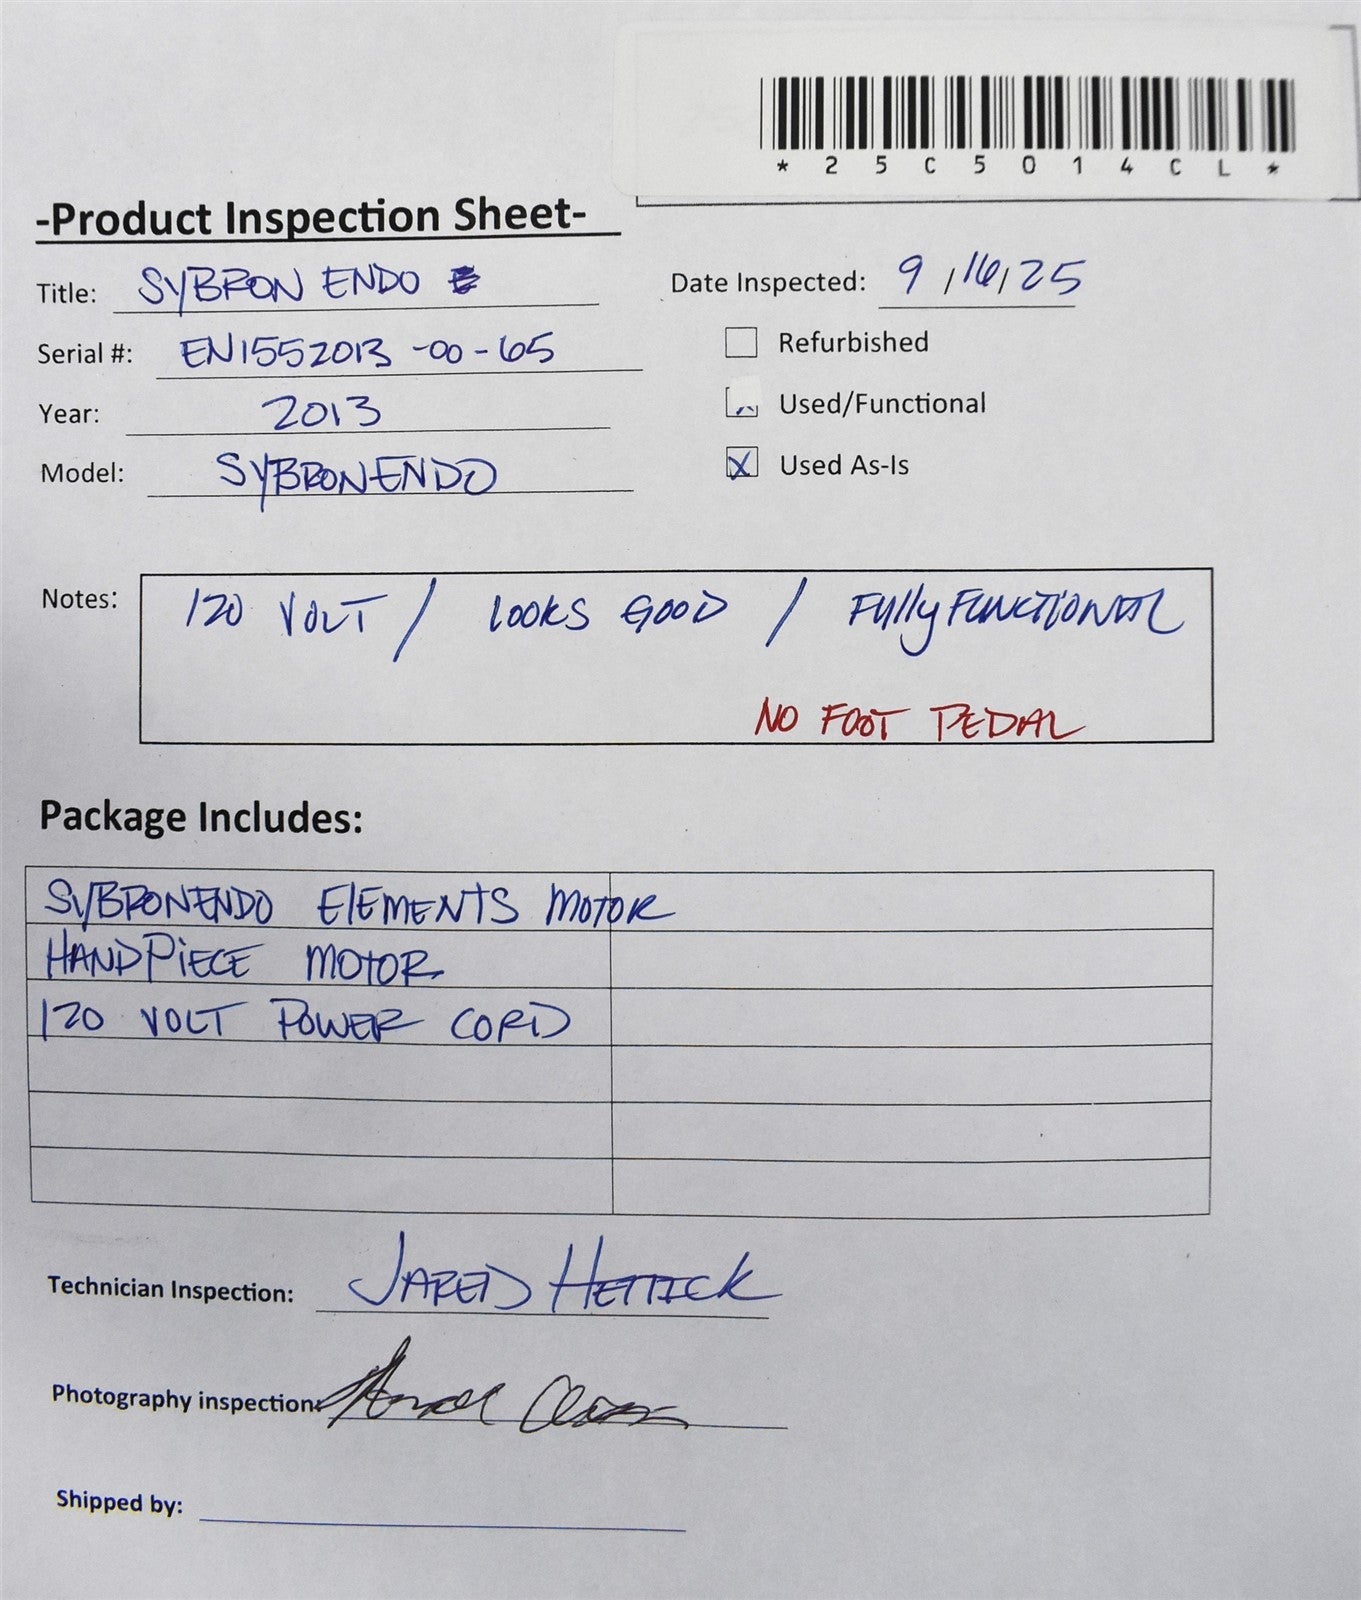 * 2 5 C 5 0 1 4 C L *
-Product Inspection Sheet-
Title: SYBRON ENDO
Date Inspected: 9/16/25
Serial #: EN1552013-00-65
Refurbished
Year: 2013
Used/Functional
Model: SYBRONENDO
X Used As-Is
Notes: 120 VOLT / LOOKS GOOD / FUlly FUNCTIONAL
NO FOOT PEDAL
Package Includes:
SYBRONENDO ElEMENTS MOTOR
HANDPiECE MOTOR
120 VOLT POWER CORD
Technician Inspection: JARED HETTICK
Photography inspection:
Shipped by: